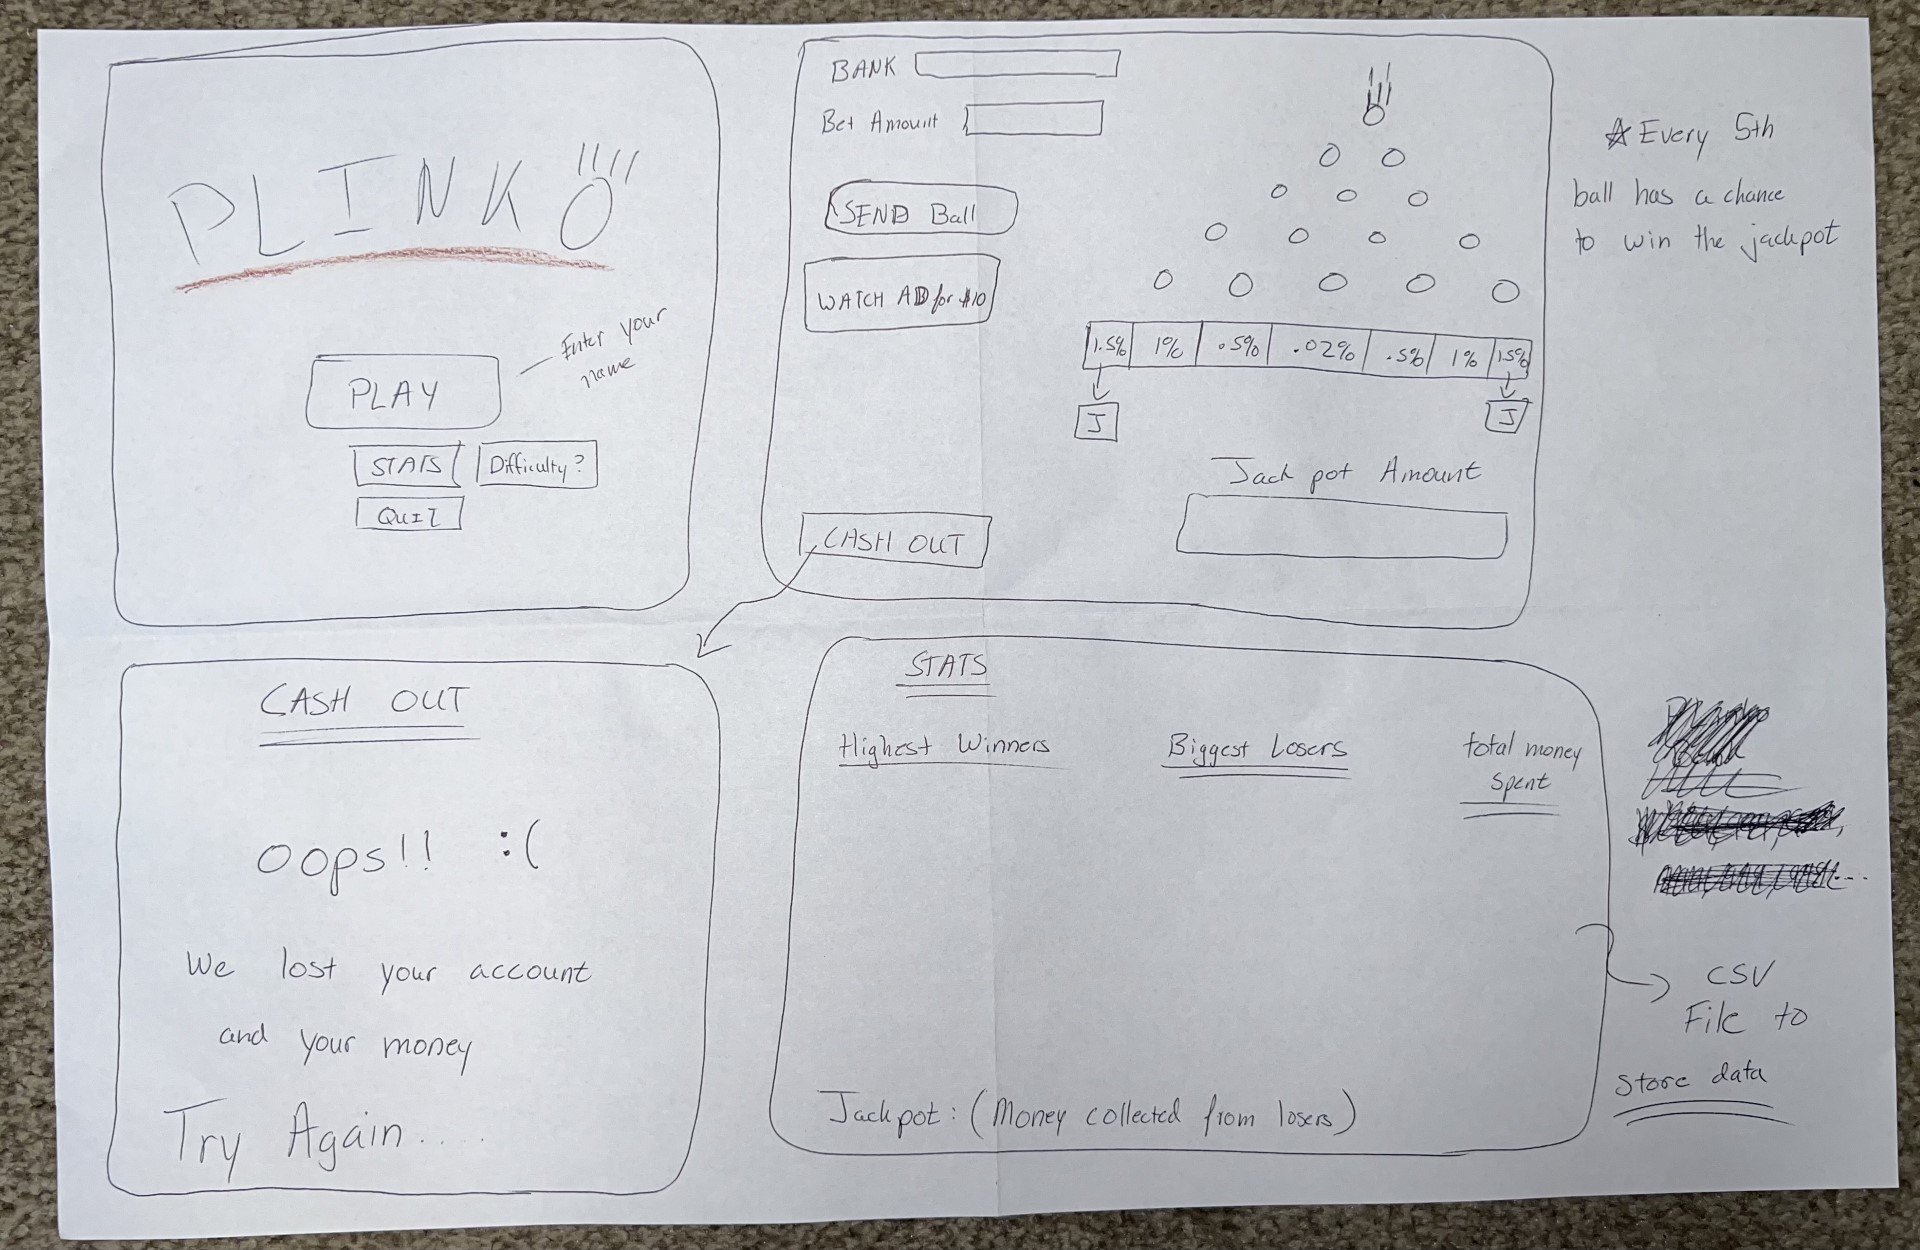 PLINKO
PLAY
Enter your
name
STATS
Difficulty?
QUIT
BANK
Bet Amount
SEND Ball
WATCH AD for $10
CASH OUT
1.5% 1% .5% .02% .5% 1% 1.5%
J J
Jackpot Amount
☆ Every 5th
ball has a chance
to win the jackpot
CASH OUT
oops!! :(
We lost your account
and your money
Try Again....
STATS
Highest Winners
Biggest Losers
total money
spent
Jackpot: (Money collected from losers)
CSV
File to
store data